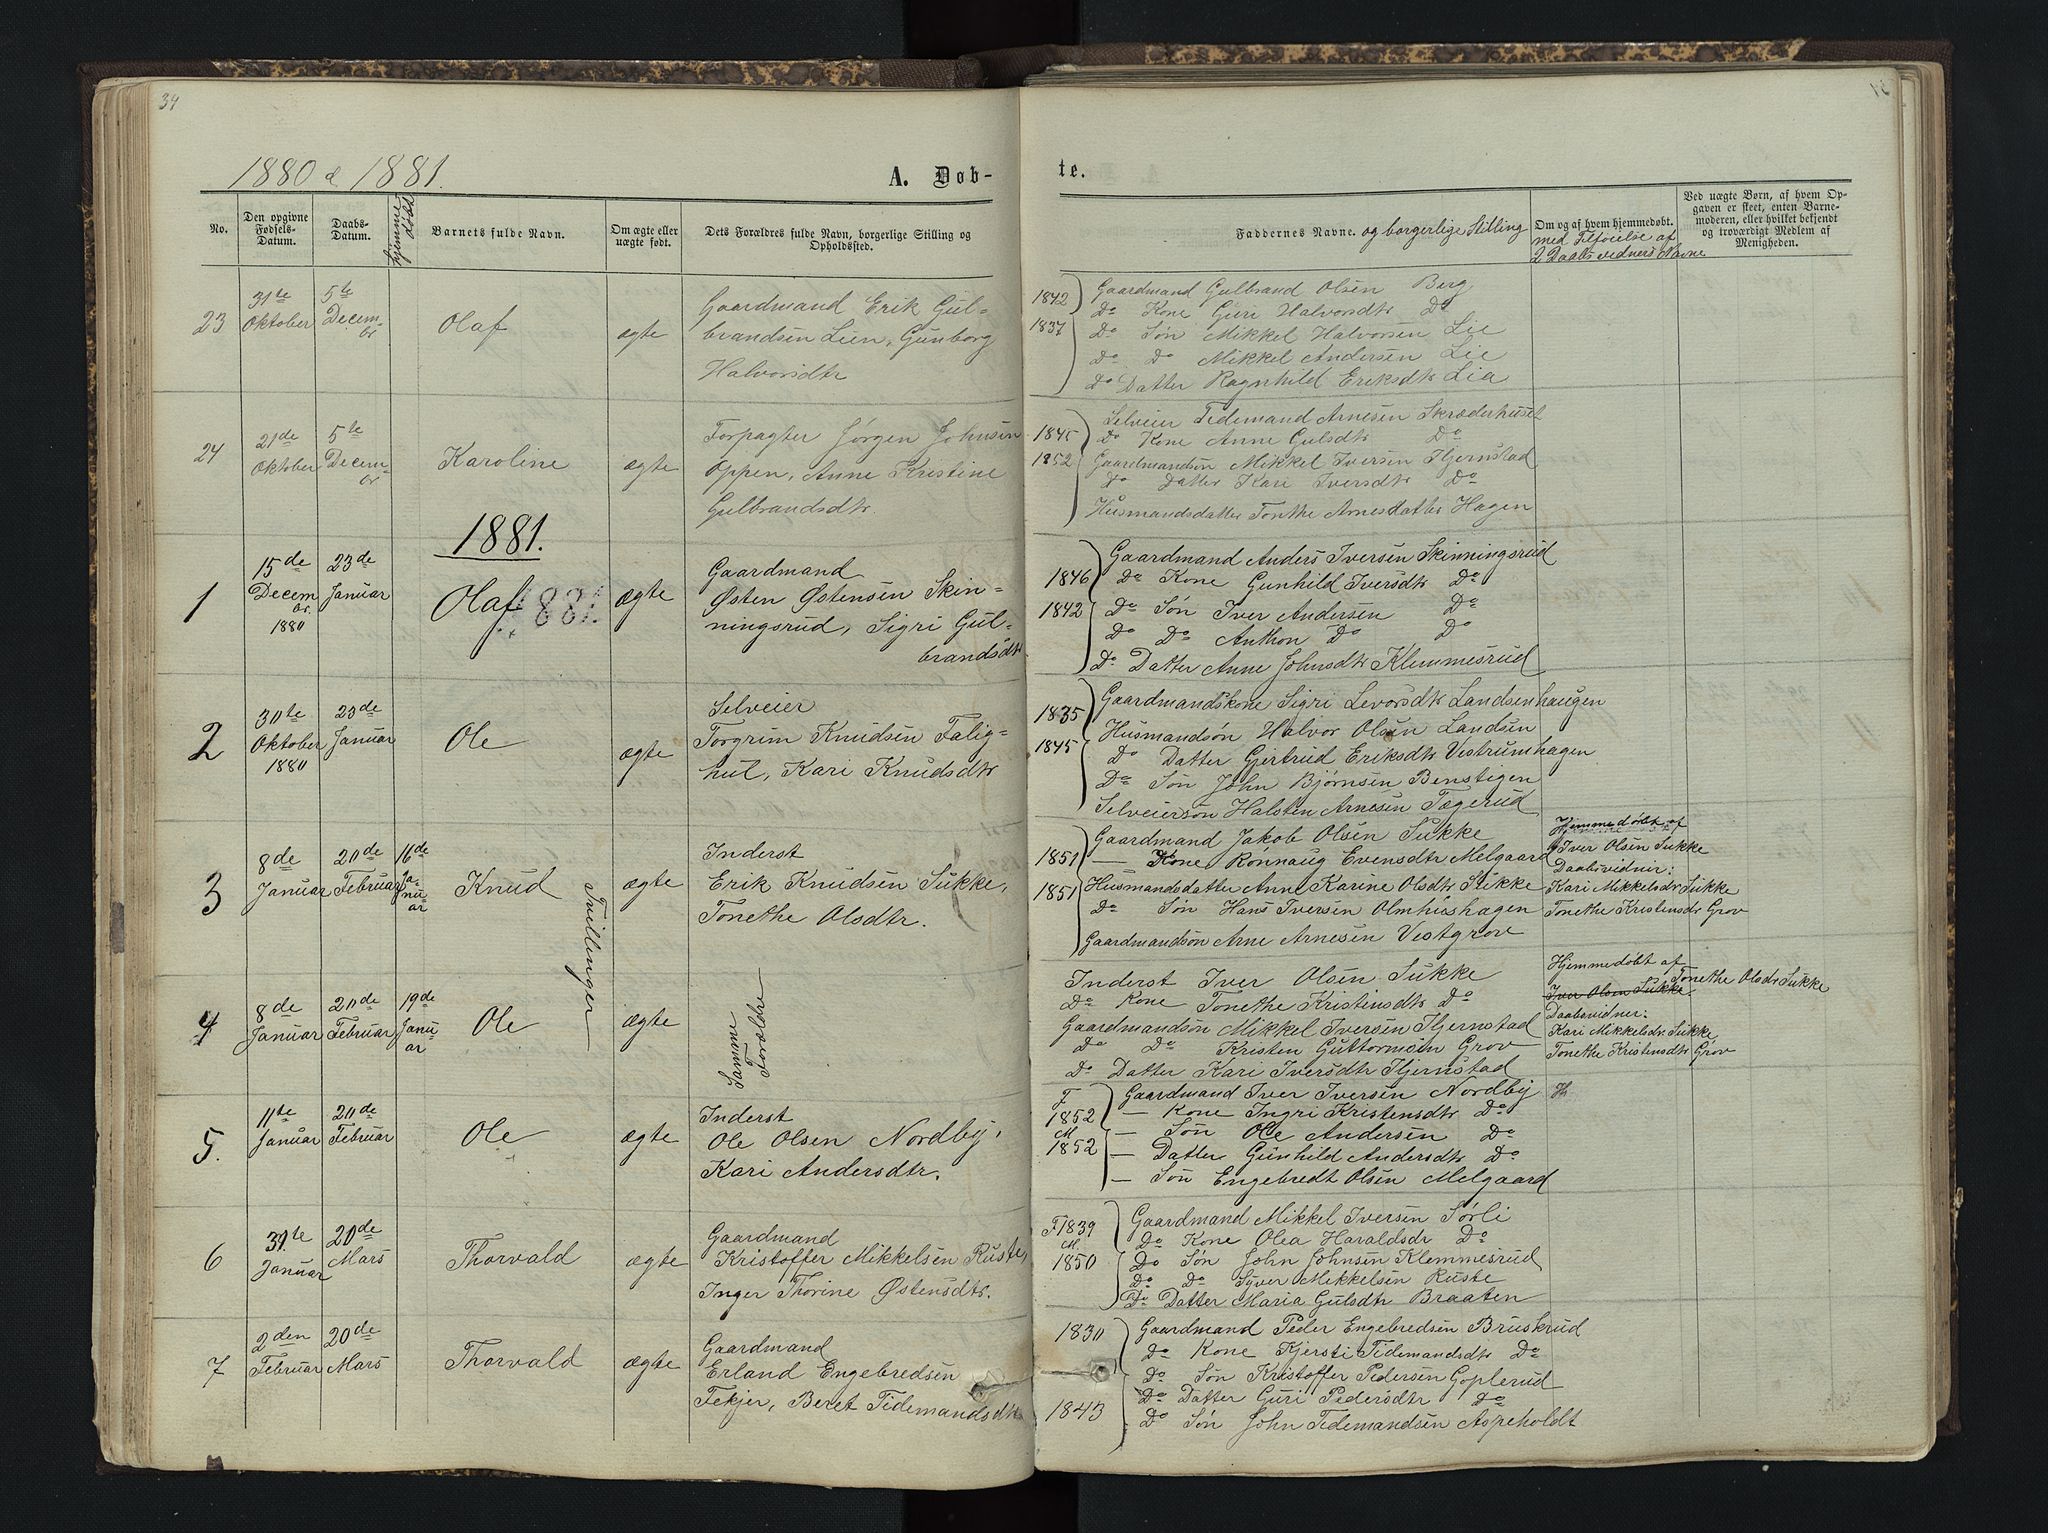 34
1880 & 1881.
A. Døb-
No.
Den opgivne Fødsels-Datum.
Daabs-Datum.
hjemme døbt
Barnets fulde Navn.
Om ægte eller uægte født.
Dets Forældres fulde Navn, borgerlige Stilling og Opholdssted.
23
31te Oktober
5te Decem-br
Olaf
ægte
Gaardmand Erik Gul-
brandsen Lien, Gunborg
Halvorsdtr
24
21de Oktober
5te Decem-br
Karoline
ægte
Forpagter Jørgen Johnsen
Oppen, Anne Kristine
Gulbrandsdtr.
1881.
1
15de Decembr. 1880
23de Januar
Olaf
1881.
ægte
Gaardmand
Østen Østensen Skin-
ningsrud, Sigri Gul-
brandsdtr
2
30te Oktober 1880
23de Januar
Ole
ægte
Selveier
Torgrim Knudsen Falig-
hul, Kari Knudsdtr
3
8de Januar
20de Februar
16de Ja-nu-ar
Knud
Tvillinger
ægte
Inderst
Erik Knudsen Sukke,
Tonethe Olsdtr.
4
8de Januar
20de Februar
19de Janu-ar
Ole
ægte
Samme Forældre
5.
11te Januar
20de Februar
Ole
ægte
Inderst
Ole Olsen Nordby,
Kari Andersdtr.
6
31te Januar
20de Mars
Thorvald
ægte
Gaardmand
Kristoffer Mikkelsen Ruste,
Inger Thorine Østensdtr.
7
2den Februar
20de Mars
Thorvald
ægte
Gaardmand
Erland Engebredsen
Fekjer, Beret Tidemandsdtr
te.
Faddernes Navne. og borgerlige Stilling
Om og af hvem hjemmedøbt.
med Tilføielse af
2 Daabsvidners Navne
Ved uægte Børn, af hvem Op-
gaven er skeet, enten Barne-
moderen, eller hvilket bekjendt
og troværdigt Medlem af
Menigheden.
1842
1837
Gaardmand Gulbrand Olsen Berg
Do Kone Guri Halvorsdtr Do
Do Søn Mikkel Halvorsen Lie
Do Do Mikkel Andersen Lie
Do Datter Ragnhild Eriksdtr Lia
1845
1852
Selveier Tidemand Arnesen Skræderhuset
Do Kone Anne Gulsdtr Do
Gaardmandsøn Mikkel Iversen Hjernstad
Do Datter Kari Iversdtr Do
Husmandsdatter Tonthe Arnesdatter Hagen
1846
1842
Gaardmand Anders Iversen Skinningsrud
Do Kone Gunhild Iversdtr Do
Do Søn Iver Andersen Do
Do Do Anthon Do Do
Do Datter Anne Johnsdtr Klemmesrud
1835
1845
Gaardmandskone Sigri Levorsdtr Landsenhaugen
Husmandsøn Halvor Olsen Landsen
Do Datter Gjertrud Eriksdtr Vestrumhagen
Do Søn John Bjørnsen Benstigen
Selveiersøn Halsten Arnesen Tægerud
1851
1851
Gaardmand Jakob Olsen Sukke
— Kone Rønnaug Evensdtr Melgaard
Husmandsdatter Anne Karine Olsdtr Sukke
Do Søn Hans Iversen Olmhushagen
Gaardmandsøn Arne Arnesen Vestgrov
Hjemmedøbt af
Iver Olsen Sukke
Daabsvidner:
Kari Mikkelsdr Sukke
Tonethe Kristensdr Grov
Inderst Iver Olsen Sukke
Do Kone Tonethe Kristinsdtr Do
Gaardmandsøn Mikkel Iversen Hjernstad
Do Do Kristen Guttormsen Grov
Do Datter Kari Iversdtr Hjernstad
Hjemmedøbt af
Tonethe Olsdr Sukke
Iver Olsen Sukke.
Daabsvidner:
Kari Mikkelsdr Sukke
Tonethe Kristensdtr Grov
F 1852
M 1852
Gaardmand Iver Iversen Nordby
— Kone Ingri Kristensdtr Do
— Søn Ole Andersen Do
— Datter Gunhild Andersdtr Do
— Søn Engebredt Olsen Melgaard
H
F 1839
M. 1850
Gaardmand Mikkel Iversen Sørli
Do Kone Olea Haraldsdr Do
Do Søn John Johnsen Klemmesrud
Do Do Syver Mikkelsen Ruste
Do Datter Maria Gulsdtr Braaten
1830
1843
Gaardmand Peder Engebredsen Bruskrud
Do Kone Kjersti Tidemandsdtr Do
Do Søn Kristoffer Pedersen Goplerud
Do Datter Guri Pedersdtr Do
Do Søn John Tidemandsen Aspeholdt